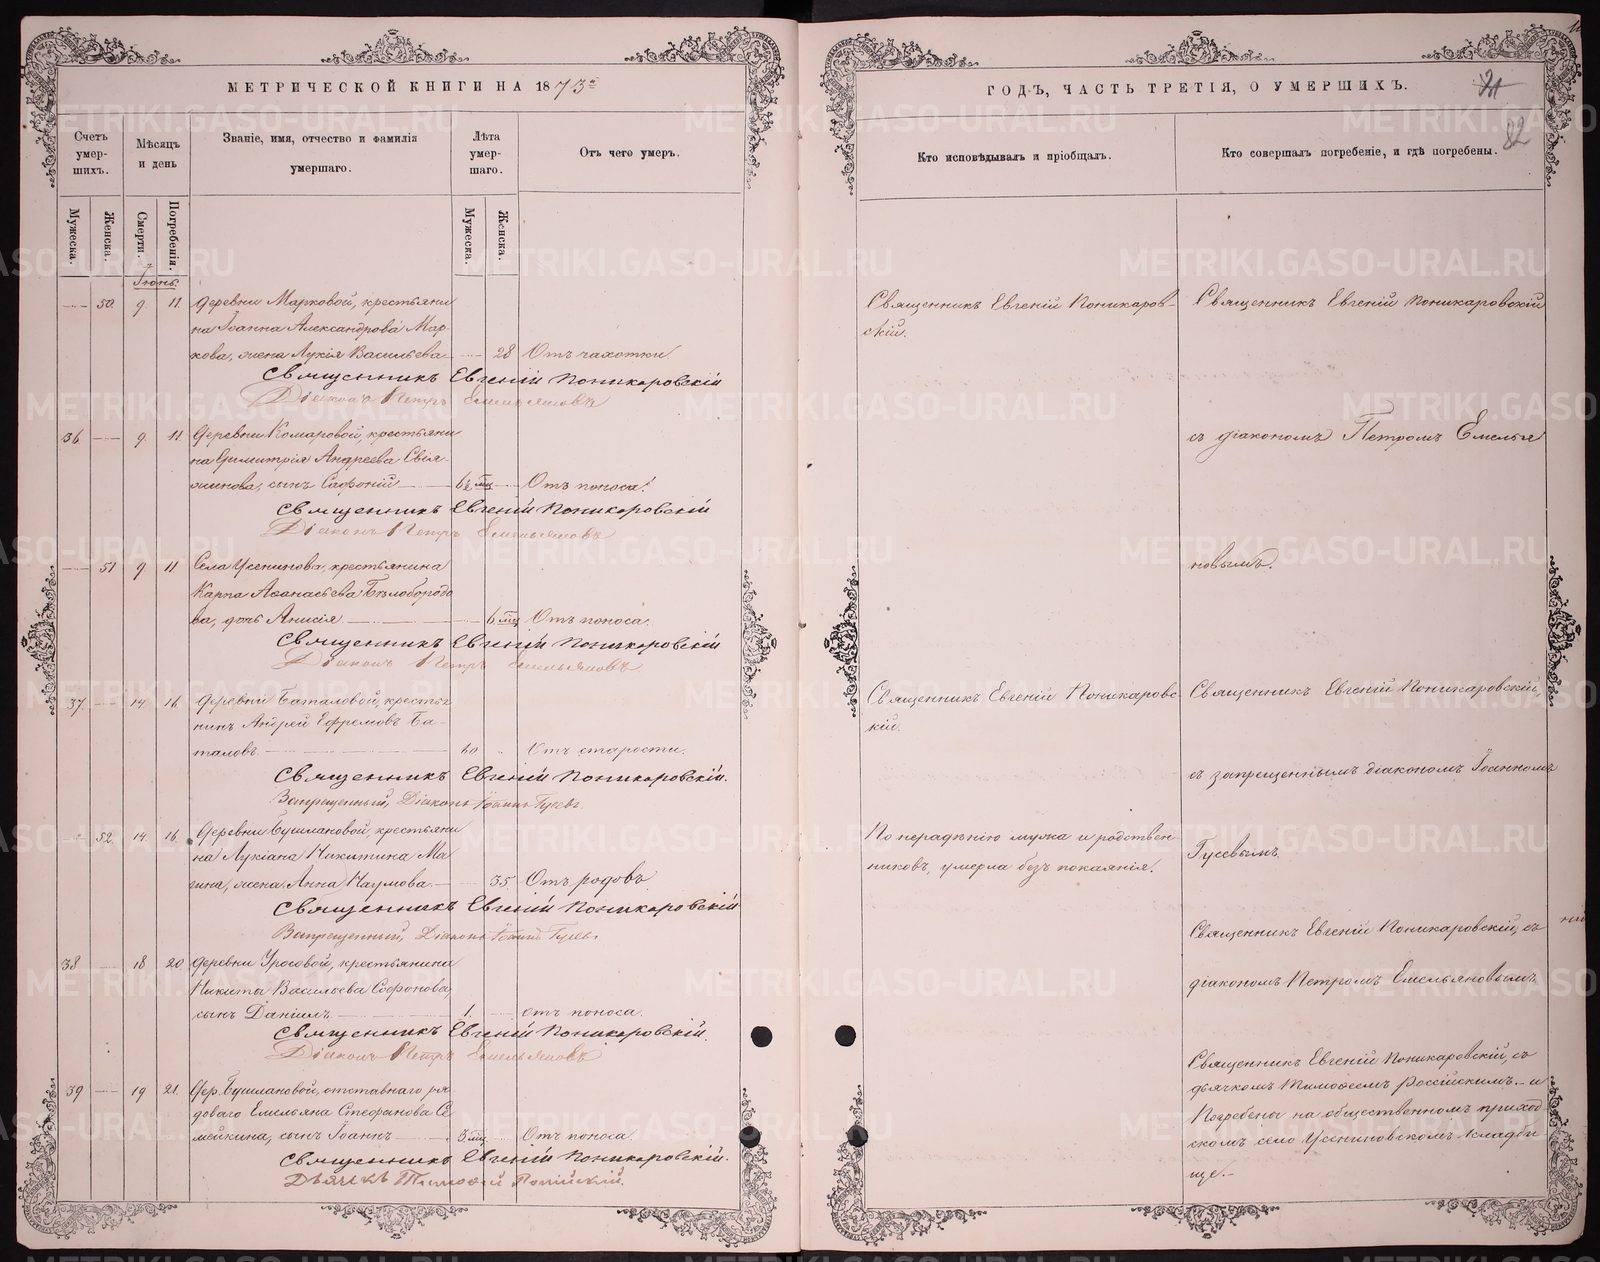 МЕТРИЧЕСКОЙ КНИГИ НА 1873й
Счетъ умер-шихъ.
Мѣсяцъ и день
Званіе, имя, отчество и фамилія умершаго.
Лѣта умер-шаго.
Отъ чего умеръ.
Мужеска.
Женска.
Смерти.
Погребенія.
Мужеска.
Женска.
Іюнь.
50. 9. 11. Деревни Марковой, крестьяни
на Іоанна Александрова Мар-
кова, жена Лукія Васильева 28 Отъ чахотки
Священникъ Евгеній Поникаровскій
Діаконъ Петръ Емельяновъ
36. 9. 11. Деревни Комаровой, крестьяни
на Димитрія Андреева Свія-
жинова, сынъ Сафоній Отъ поноса.
Священникъ Евгеній Поникаровскій
Діаконъ Петръ Емельяновъ
51 9 11 Села Усенинова, крестьянина
Карпа Аѳанасьева Бѣлобородо
ва, дочь Анисія 6 мц Отъ поноса.
Священникъ Евгеній Поникаровскій
Діаконъ Петръ Емельяновъ
37. 14 16 Деревни Баталовой, крестья
нинъ Андрей Ефремовъ Ба-
таловъ. 60 Отъ старости.
Священникъ Евгеній Поникаровскій.
Запрещенный Діаконъ Іоаннъ Гусевъ
52 14. 16. Деревни Бушлановой, крестьяни
на Лукіана Никитина Ма
гина, жена Анна Наумова 35 Отъ родовъ
Священникъ Евгеній Поникаровскій
Запрещенный Діаконъ Іоаннъ Гусевъ
38 18 20 Деревни Уросовой, крестьянина
Никиты Васильева Софонова,
сынъ Даніилъ 1. отъ поноса.
Священникъ Евгеній Поникаровскій.
Діаконъ Петръ Емельяновъ
39 19 21. Дер. Бушлановой, отставнаго ря
доваго Емельяна Стефанова Се
мейкина, сынъ Іоаннъ Отъ поноса.
Священникъ Евгеній Поникаровскій.
Дьячекъ Тимоѳей Россійскій.
ГОДЪ, ЧАСТЬ ТРЕТІЯ, О УМЕРШИХЪ.
82
Кто исповѣдывалъ и пріобщалъ.
Кто совершалъ погребеніе, и гдѣ погребены.
Священникъ Евгеній Поникаров-
скій.
Священникъ Евгеній Поникаровскій
съ діакономъ Петромъ Емелья
новымъ.
Священникъ Евгеній Поникаровс
кій.
Священникъ Евгеній Поникаровскій,
съ запрещеннымъ діакономъ Іоанномъ
По нерадѣнію мужа и родствен-
никовъ, умерла безъ покаянія.
Гусевымъ
Священникъ Евгеній Поникаровскій, съ
діакономъ Петромъ Емельяновымъ
Священникъ Евгеній Поникаровскій, съ
дьячкомъ Тимоѳеемъ Россійскимъ. и
Погребены на общественномъ приход
скомъ село Усениновскомъ кладби
ще.
METRIKI.GASO-URAL.RU